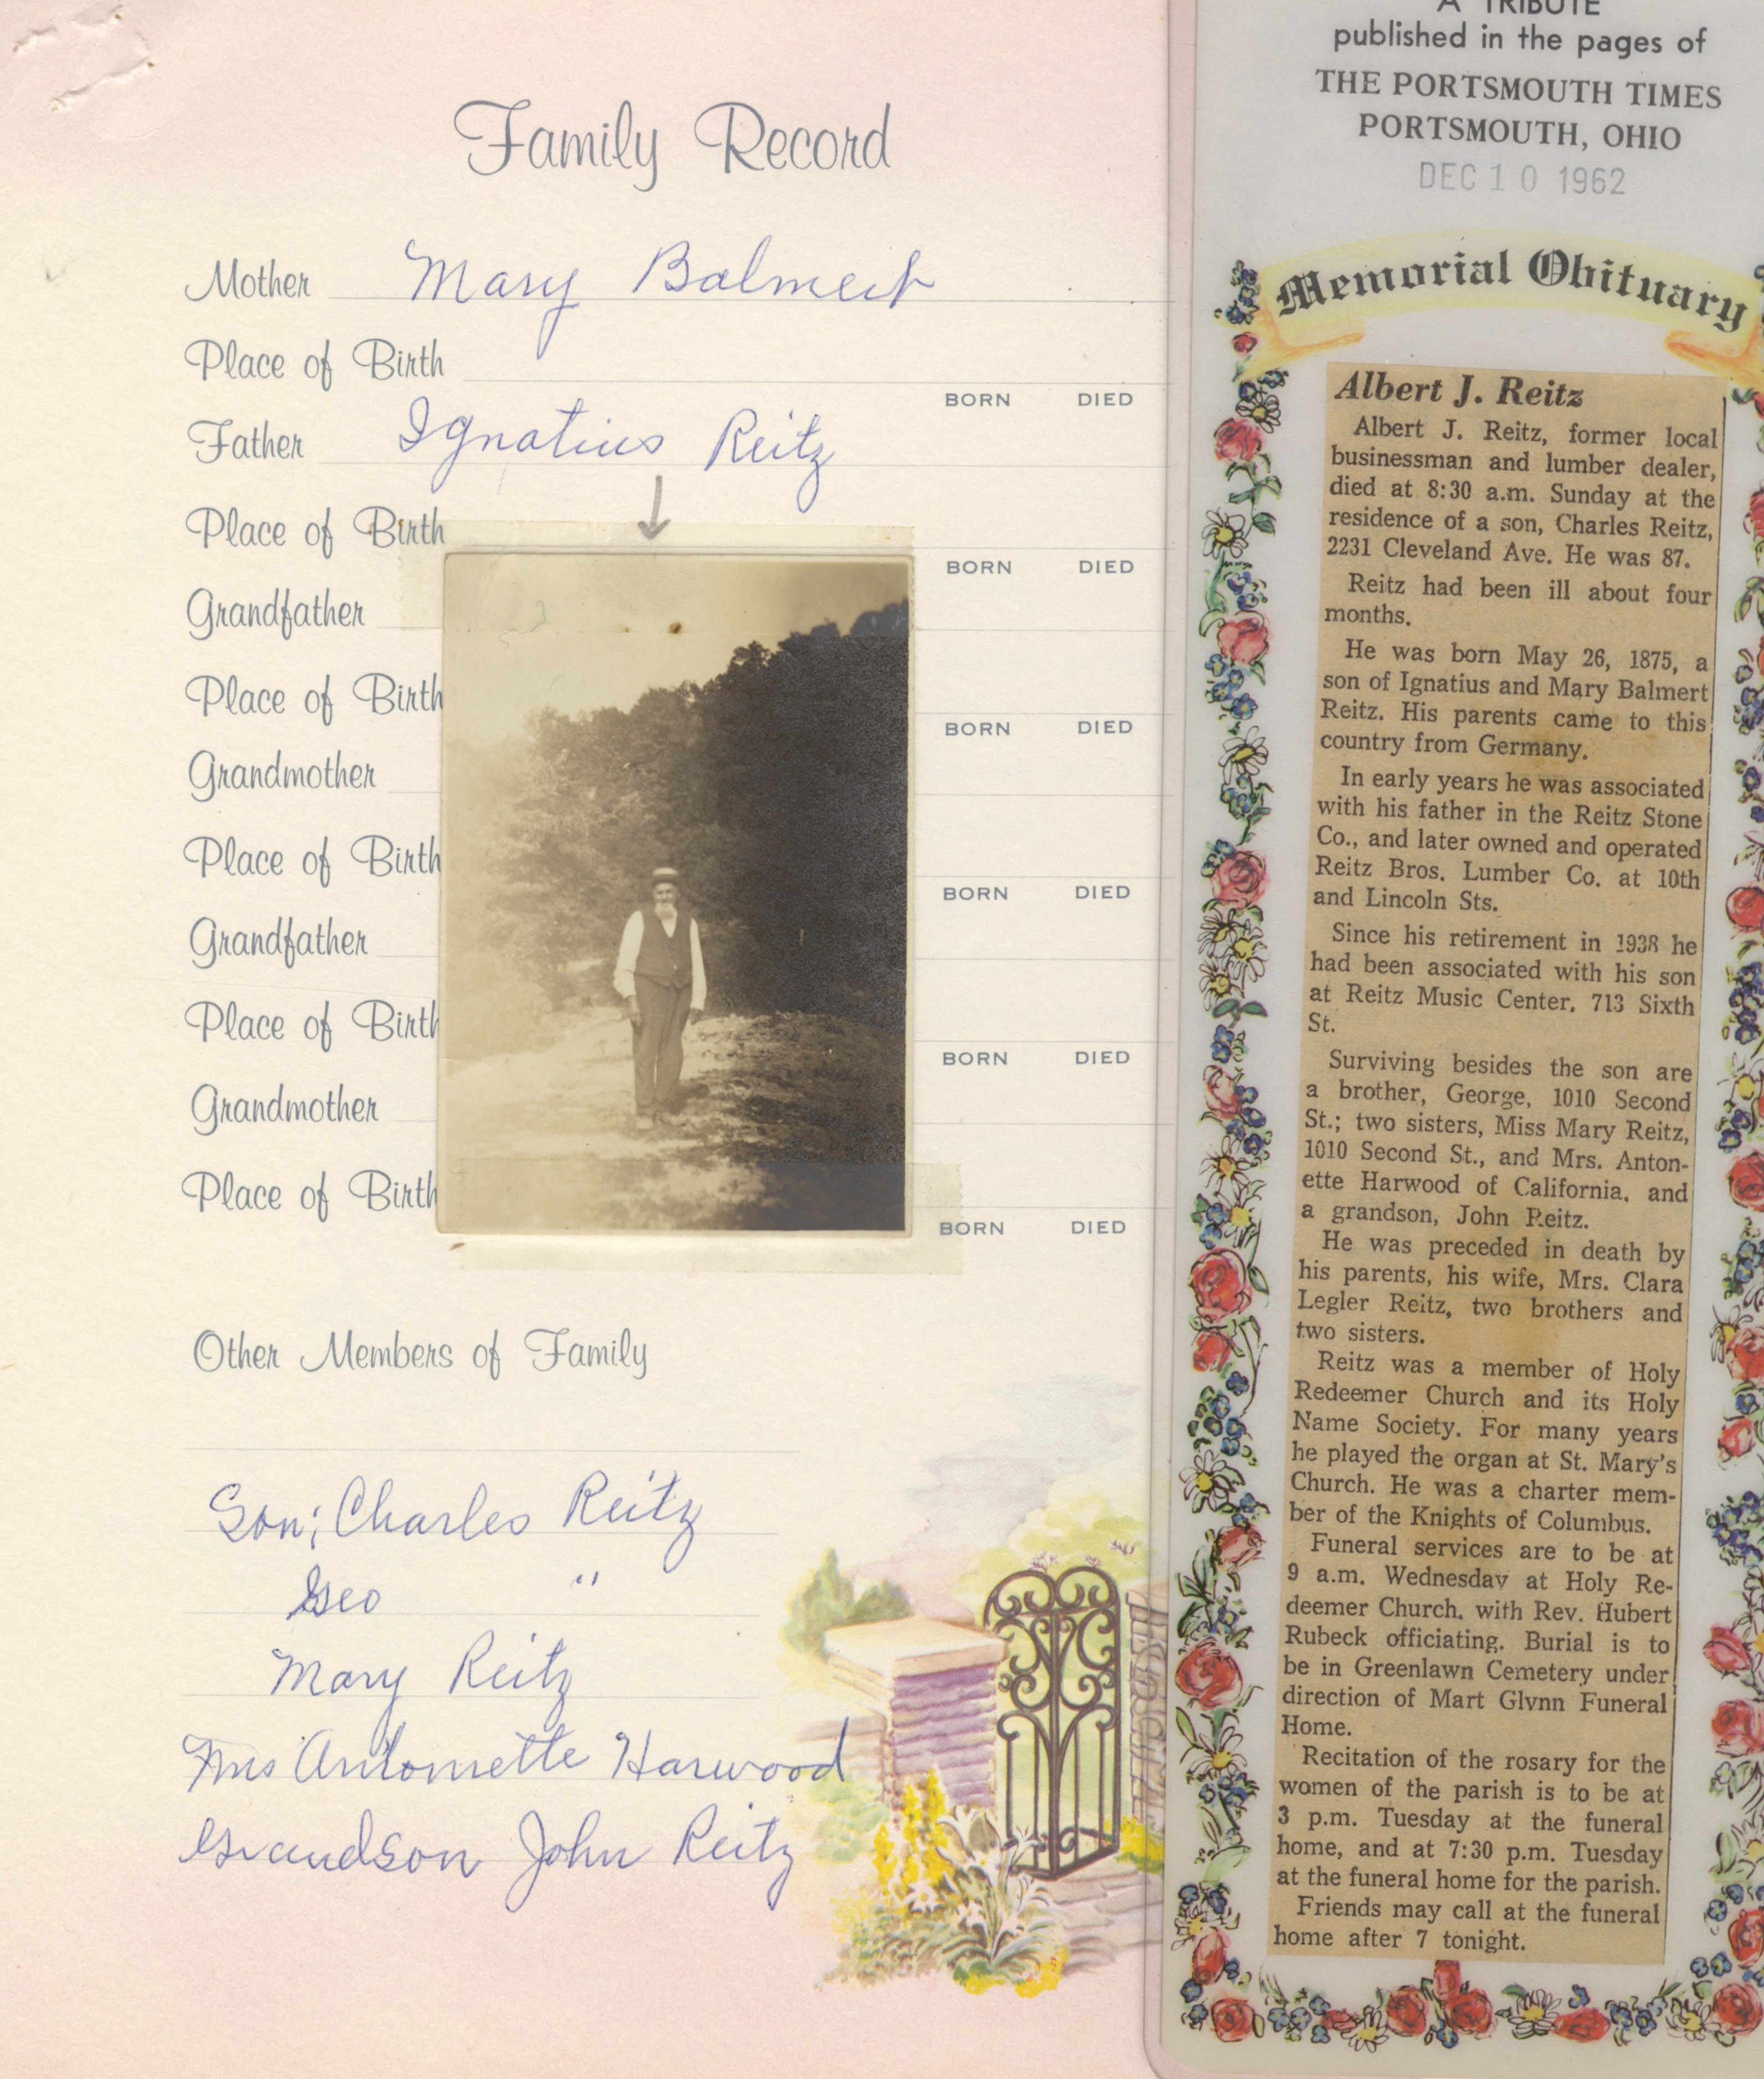 Family Record
Mother Mary Balmert
Place of Birth
BORN DIED
Father Ignatius Reitz
Place of Birth
BORN DIED
Grandfather
Place of Birth
BORN DIED
Grandmother
Place of Birth
BORN DIED
Grandfather
Place of Birth
BORN DIED
Grandmother
Place of Birth
BORN DIED
Other Members of Family
Son; Charles Reitz
Geo "
Mary Reitz
Mrs Antonnette Harwood
Grandson John Reitz
A TRIBUTE
published in the pages of
THE PORTSMOUTH TIMES
PORTSMOUTH, OHIO
DEC 10 1962
Memorial Obituary
Albert J. Reitz
Albert J. Reitz, former local
businessman and lumber dealer,
died at 8:30 a.m. Sunday at the
residence of a son, Charles Reitz,
2231 Cleveland Ave. He was 87.
Reitz had been ill about four
months.
He was born May 26, 1875, a
son of Ignatius and Mary Balmert
Reitz. His parents came to this
country from Germany.
In early years he was associated
with his father in the Reitz Stone
Co., and later owned and operated
Reitz Bros. Lumber Co. at 10th
and Lincoln Sts.
Since his retirement in 1938 he
had been associated with his son
at Reitz Music Center, 713 Sixth
St.
Surviving besides the son are
a brother, George, 1010 Second
St.; two sisters, Miss Mary Reitz,
1010 Second St., and Mrs. Anton-
ette Harwood of California, and
a grandson, John Reitz.
He was preceded in death by
his parents, his wife, Mrs. Clara
Legler Reitz, two brothers and
two sisters.
Reitz was a member of Holy
Redeemer Church and its Holy
Name Society. For many years
he played the organ at St. Mary's
Church. He was a charter mem-
ber of the Knights of Columbus.
Funeral services are to be at
9 a.m. Wednesday at Holy Re-
deemer Church, with Rev. Hubert
Rubeck officiating. Burial is to
be in Greenlawn Cemetery under
direction of Mart Glynn Funeral
Home.
Recitation of the rosary for the
women of the parish is to be at
3 p.m. Tuesday at the funeral
home, and at 7:30 p.m. Tuesday
at the funeral home for the parish.
Friends may call at the funeral
home after 7 tonight.